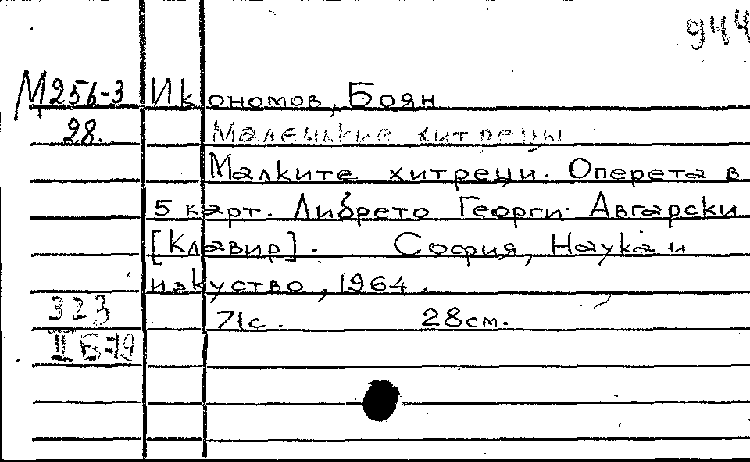 944
М256-3 Икономов, Боян
28. Маленькие хитрецы
Малките хитреци. Оперета в
5 карт. Либрето Георги Авгарски
[Клавир]. София, Наука и
изкуство, 1964.
323 71с. 28см.